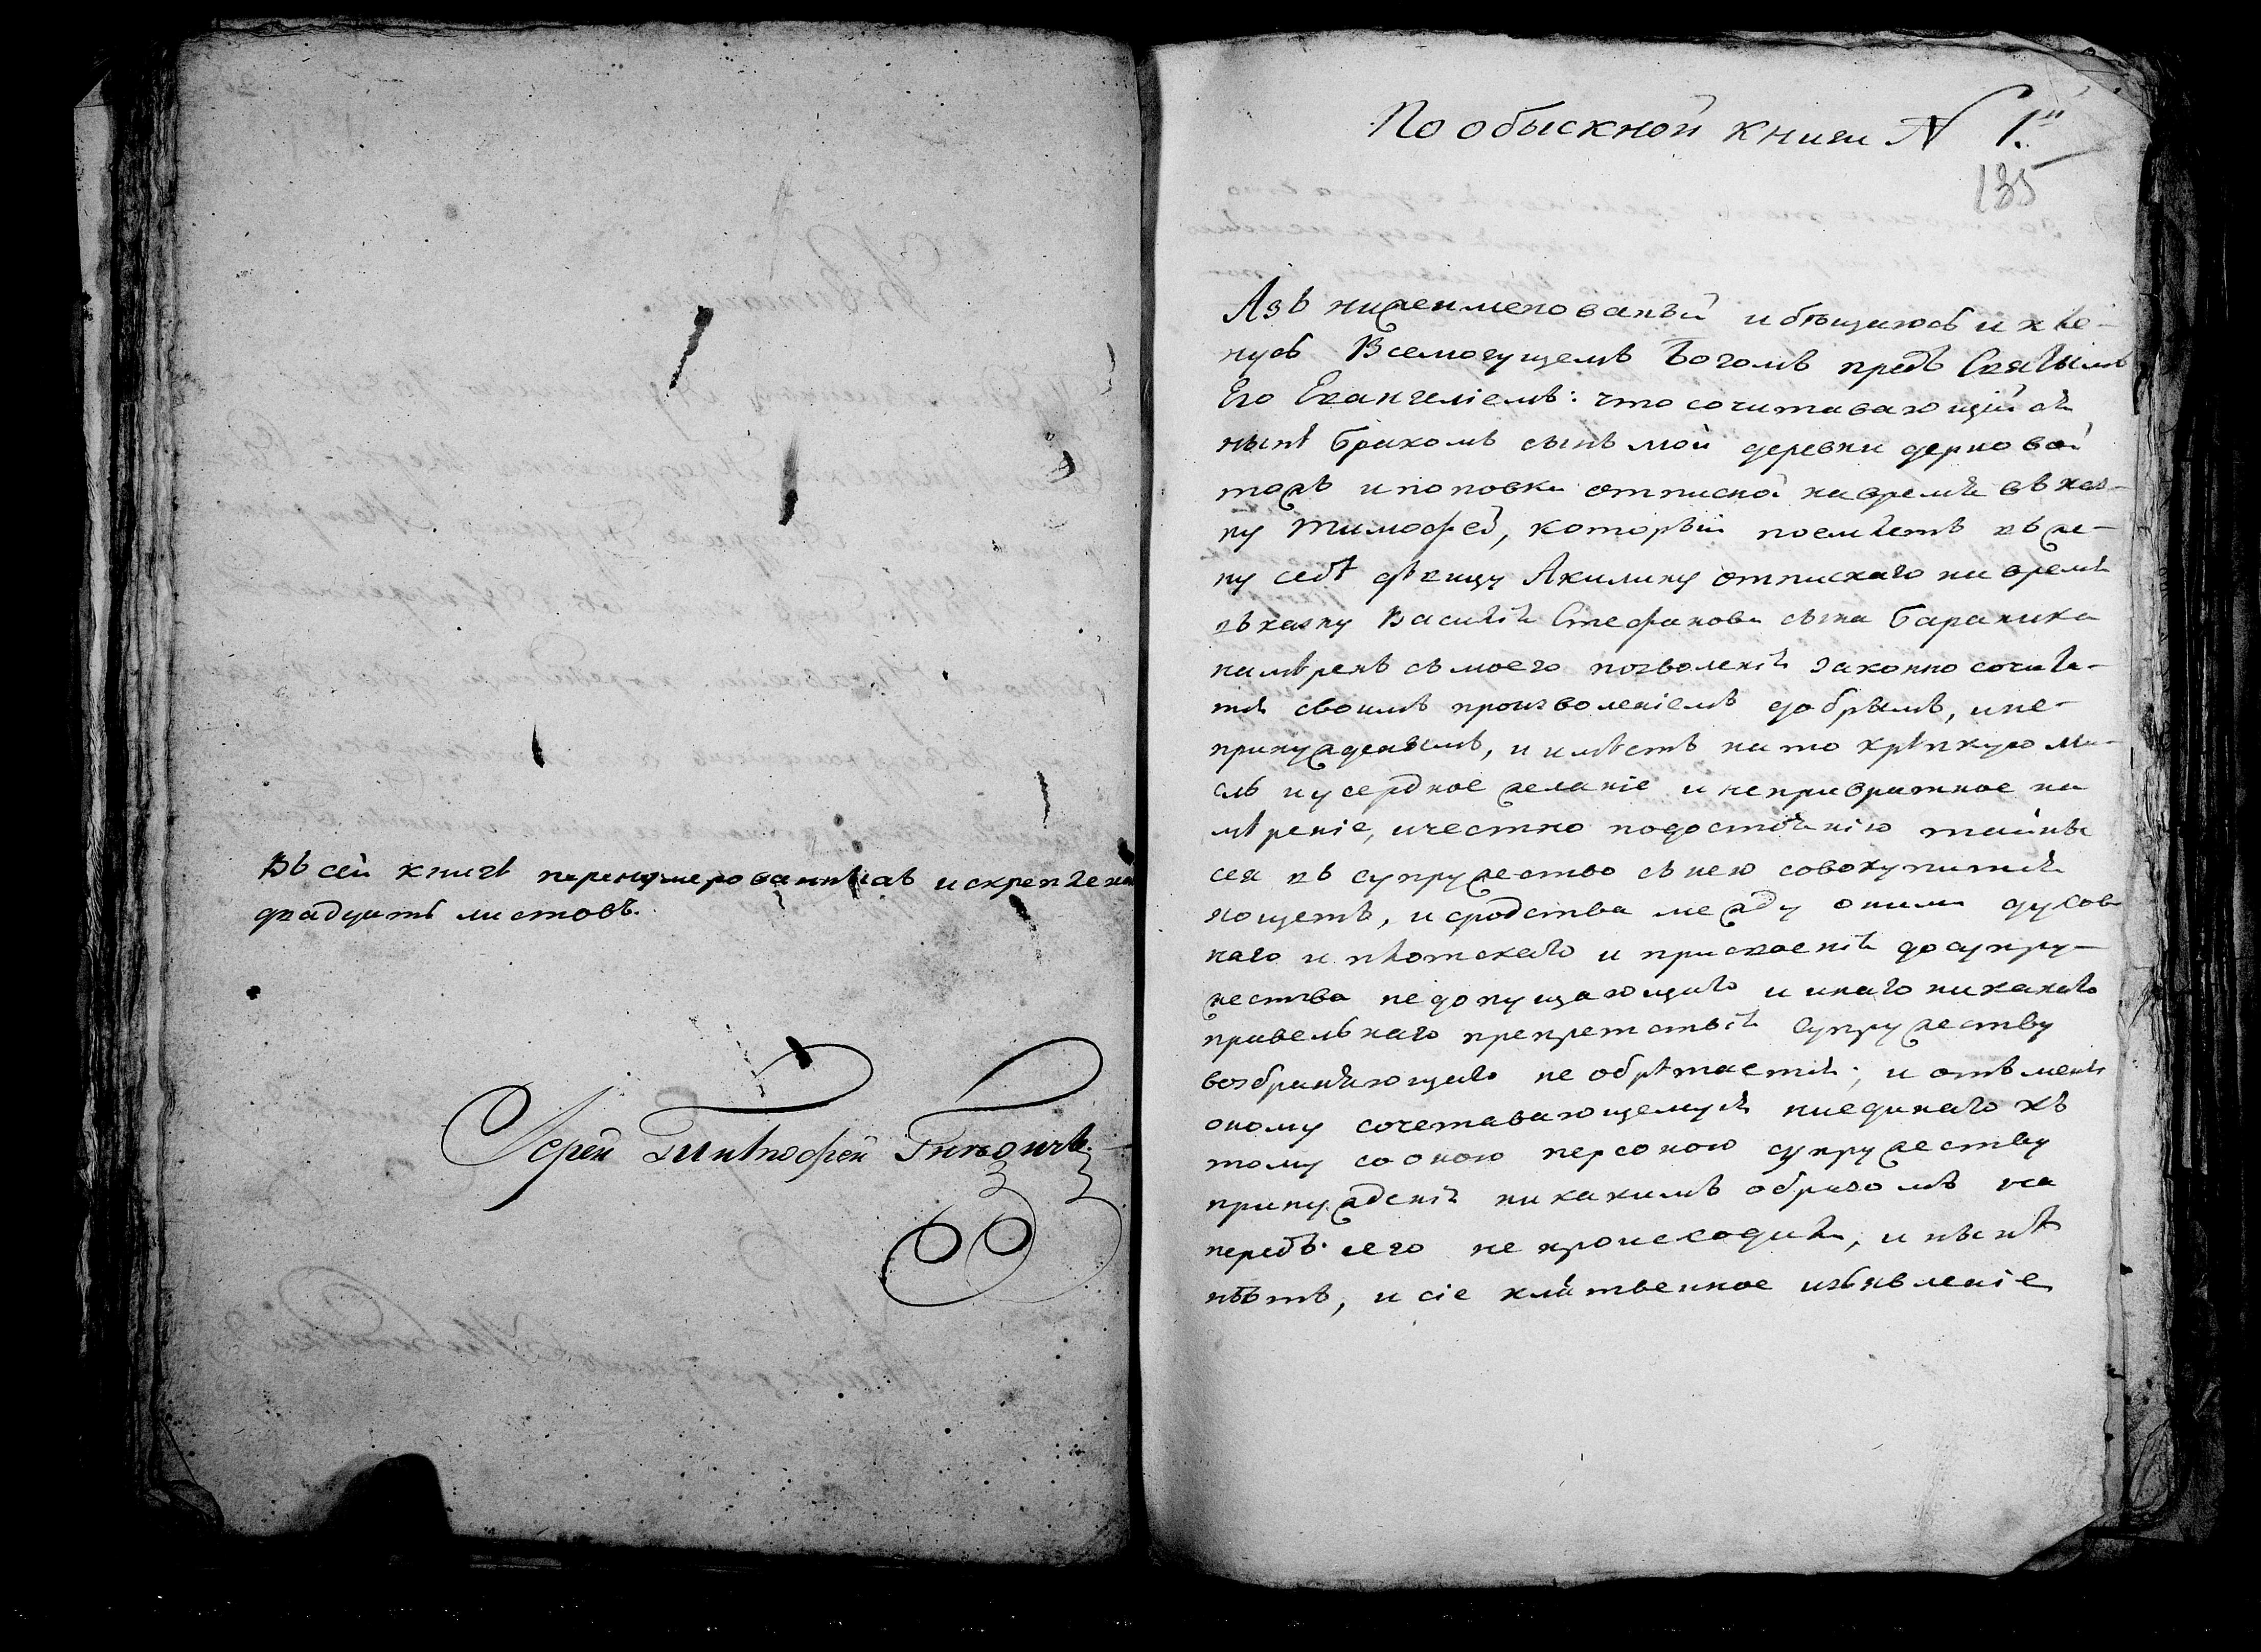 Въ сей книгѣ перенумерованныхъ и скреплен
двадцать листовъ.
Іерей Тимофей
По обыскной книги N 1.й
135
Азъ нижеименованый и обѣщаюсь и кле-
нусь Всемогущемъ Богомъ предъ Святымъ
Его Евангеліемъ: что сочитавающійся
нынѣ бракомъ сынъ мой деревни дерновой
тожъ и поповки отписной на время въ каз-
ну Тимофей, который поемлетъ въ же-
ну себѣ дѣвицу Акилину отпискаго на время
въ казну Василія Стефанова сына Бараника
намѣренъ съ моего позволенія законно сочита-
тся своимъ произволеніемъ добрымъ, и не-
принужденымъ, и имѣетъ на то крѣпкую ми-
сль и усердное желаніе и непривратное на
мѣреніе, и честно по достоянію тайны
сея въ супружество съ нею совокупится
хощетъ, и сродства между оными духов
наго и плотскаго и присвоенія до супру-
жества недопущающаго и инаго никакаго
правельнаго препретствія супружеству
возбраняющаго не обрѣтается; и отъ мене
оному сочетавающемуся ниединаго къ
тому со оною персоною супружеству
принужденія никакимъ образомъ
передъ сего не происходило, и нынѣ
нѣтъ, и сіе клятвенное изъявленіе